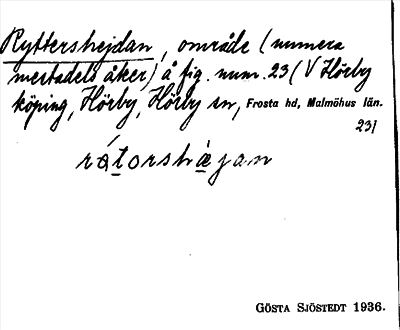 Ryttershejdan, område (numera
mestadels åker) å fig. num. 23 (V Hörby
köping, Hörby, Hörby sn, Frosta hd, Malmöhus län.
23)
rátorshæ̀jan
GÖSTA SJÖSTEDT 1936.